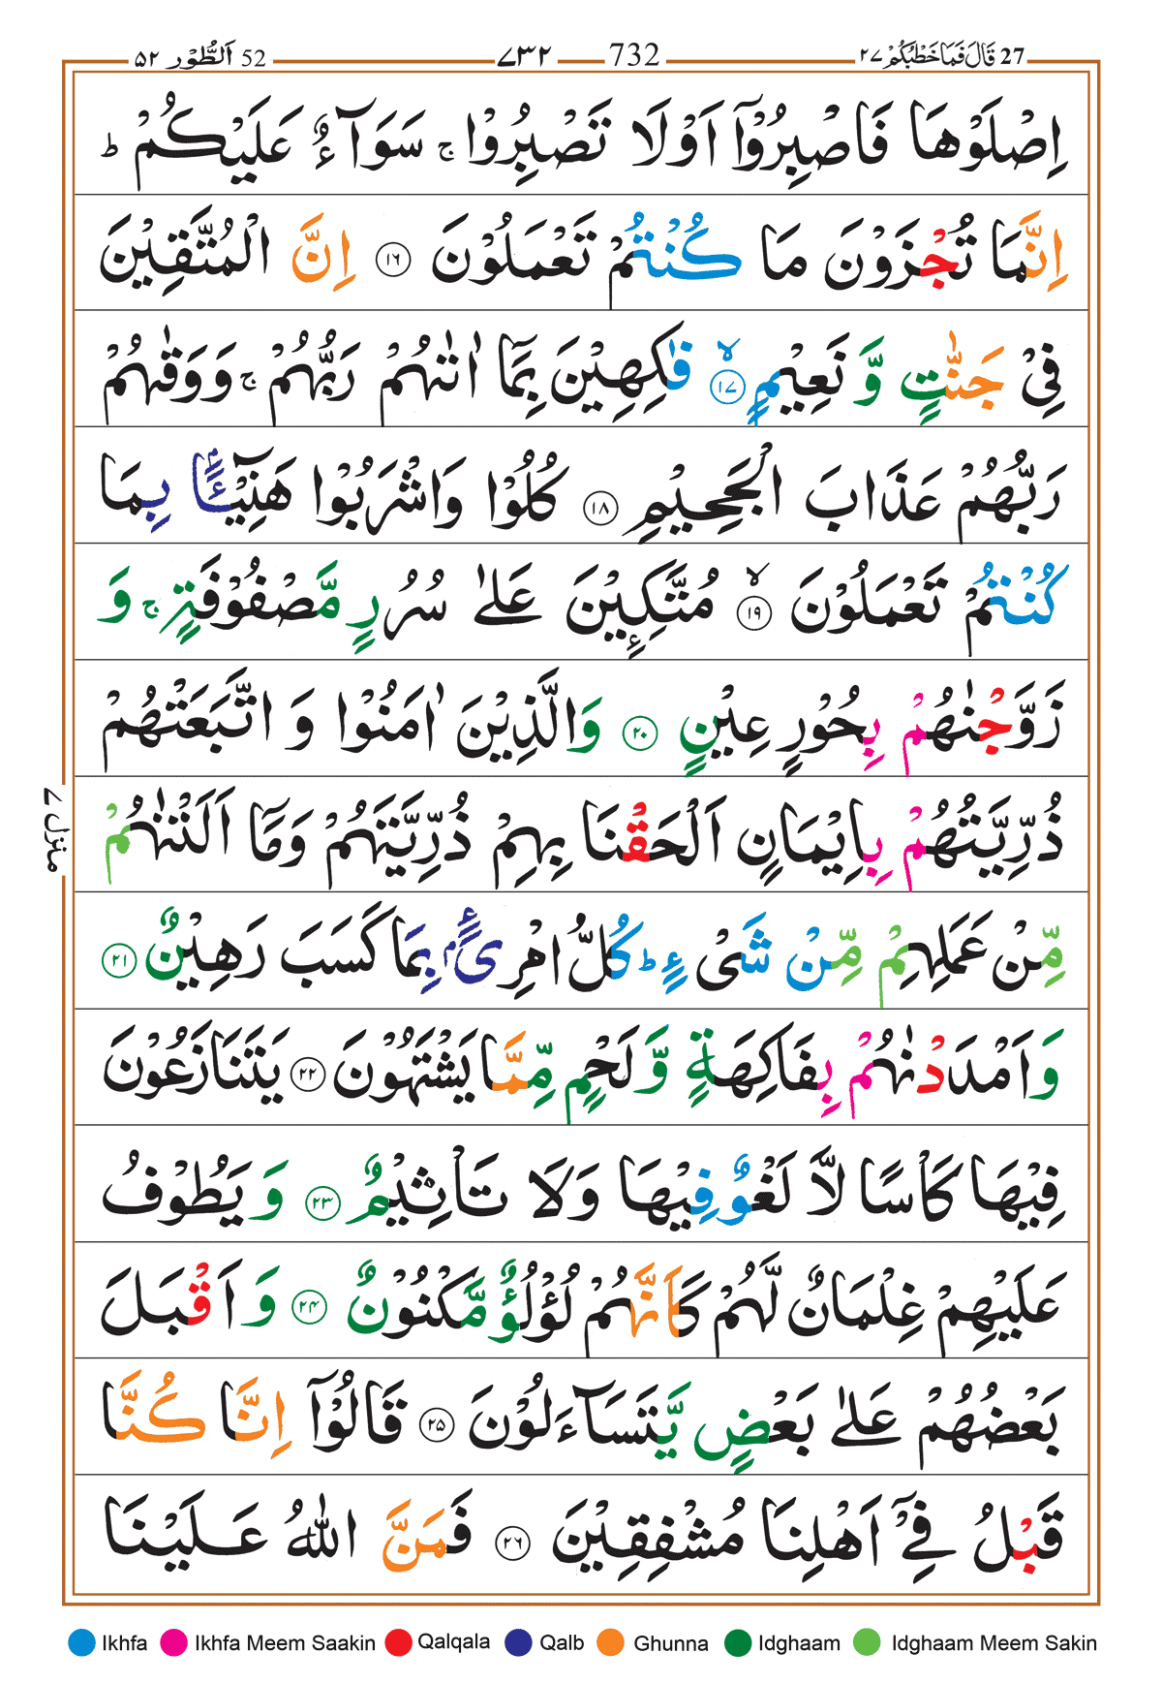 27 قَالَ فَمَا خَطْبُكُمْ ٢٧ 732 ٧٣٢ 52 اَلطُّوْر ٥٢
اِصْلَوْهَا فَاصْبِرُوْۤا اَوْلَا تَصْبِرُوْا ۚ سَوَآءٌ عَلَيْكُمْ ؕ
اِنَّمَا تُجْزَوْنَ مَا كُنْتُمْ تَعْمَلُوْنَ ١٦ اِنَّ الْمُتَّقِيْنَ
فِيْ جَنّٰتٍ وَّ نَعِيْمٍ ۙ ١٧ فٰكِهِيْنَ بِمَاۤ اٰتٰىهُمْ رَبُّهُمْ ۚ وَوَقٰىهُمْ
رَبُّهُمْ عَذَابَ الْجَحِيْمِ ١٨ كُلُوْا وَاشْرَبُوْا هَنِيْٓـًٔۢا بِمَا
كُنْتُمْ تَعْمَلُوْنَ ۙ ١٩ مُتَّكِـِٕيْنَ عَلٰى سُرُرٍ مَّصْفُوْفَةٍ ۚ وَ
زَوَّجْنٰهُمْ بِحُوْرٍ عِيْنٍ ٢٠ وَالَّذِيْنَ اٰمَنُوْا وَ اتَّبَعَتْهُمْ
ذُرِّيَّتُهُمْ بِاِيْمَانٍ اَلْحَقْنَا بِهِمْ ذُرِّيَّتَهُمْ وَمَاۤ اَلَتْنٰهُمْ
مِّنْ عَمَلِهِمْ مِّنْ شَىْءٍ ؕ كُلُّ امْرِیٴٍۭ بِمَا كَسَبَ رَهِيْنٌ ٢١
وَاَمْدَدْنٰهُمْ بِفَاكِهَةٍ وَّ لَحْمٍ مِّمَّا يَشْتَهُوْنَ ٢٢ يَتَنَازَعُوْنَ
فِيْهَا كَاْسًا لَّا لَغْوٌ فِيْهَا وَلَا تَاْثِيْمٌ ٢٣ وَ يَطُوْفُ
عَلَيْهِمْ غِلْمَانٌ لَّهُمْ كَاَنَّهُمْ لُؤْلُؤٌ مَّكْنُوْنٌ ٢٤ وَ اَقْبَلَ
بَعْضُهُمْ عَلٰى بَعْضٍ يَّتَسَآءَلُوْنَ ٢٥ قَالُوْۤا اِنَّا كُنَّا
قَبْلُ فِيْۤ اَهْلِنَا مُشْفِقِيْنَ ٢٦ فَمَنَّ اللّٰهُ عَلَيْنَا
منزل ٧
Ikhfa Ikhfa Meem Saakin Qalqala Qalb Ghunna Idghaam Idghaam Meem Sakin